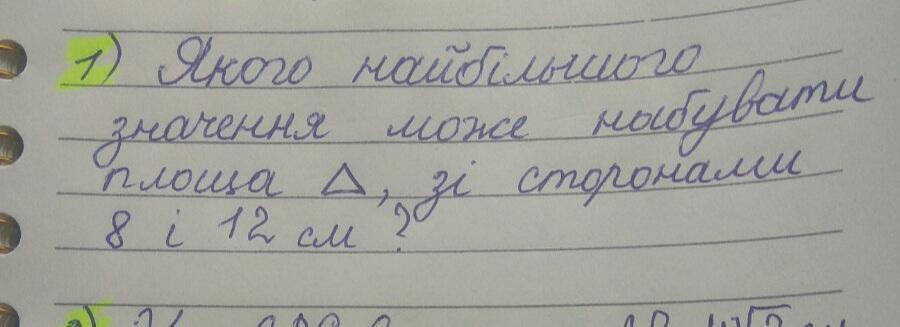 1) Якого найбільшого
значення може набувати
площа Δ, зі сторонами
8 і 12 см ?